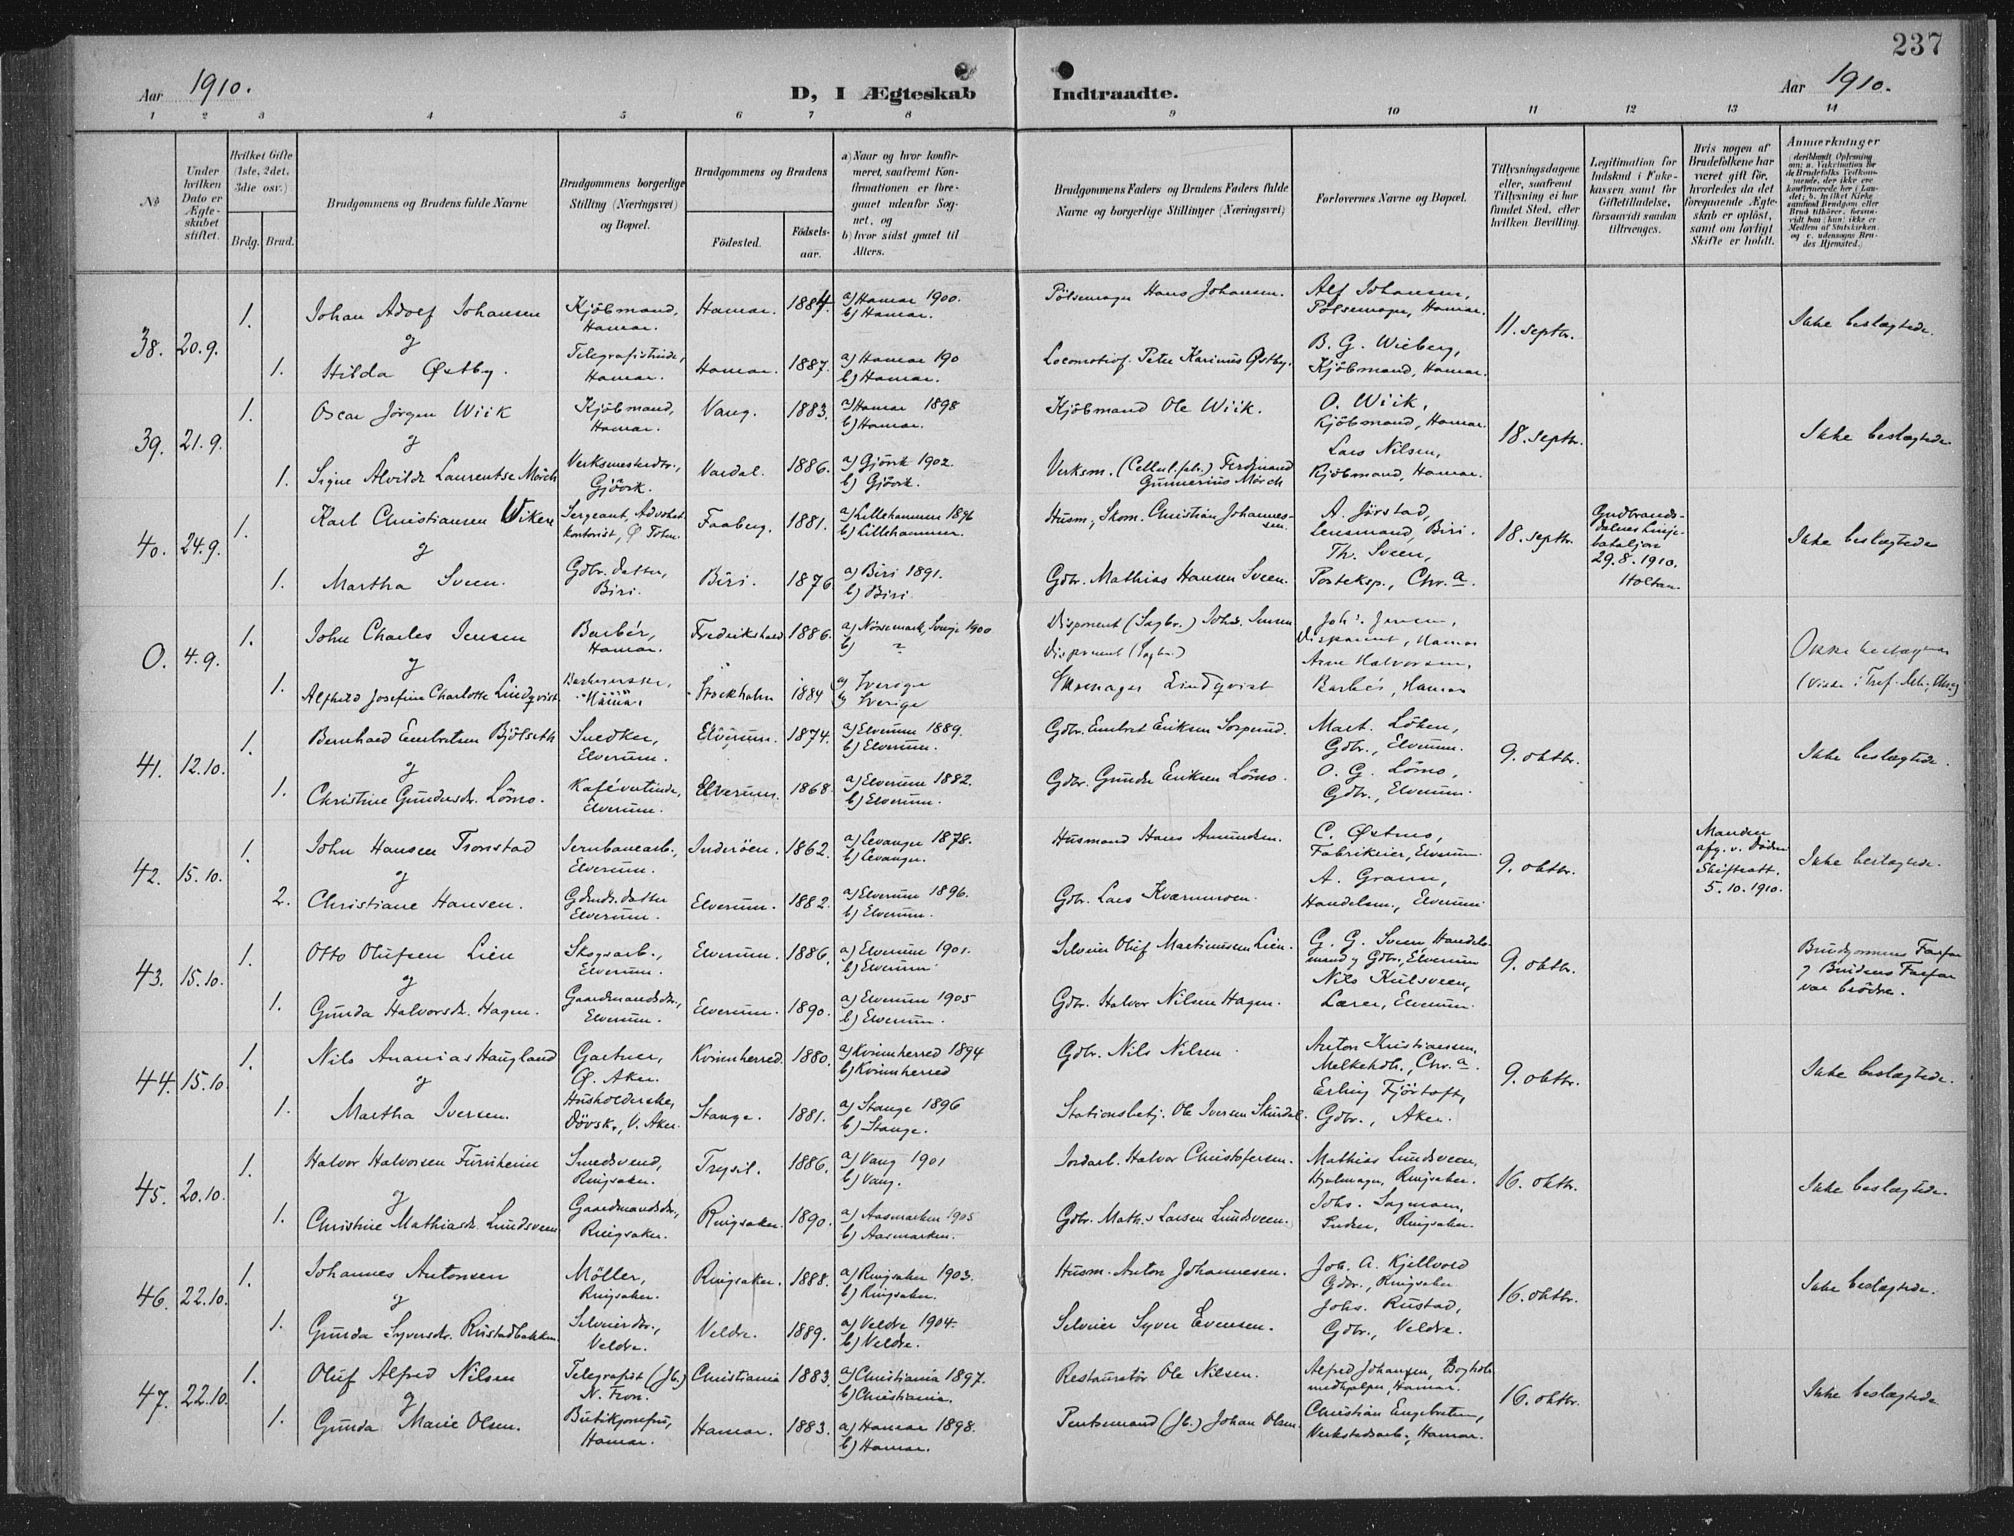 237
Aar 1910.
D, I Ægteskab Indtraadte.
Aar 1910.
1 2 3 4 5 6 7 8 9 10 11 12 13 14
No
Under hvilken Dato er Ægteskabet stiftet.
Hvilket Gifte (1ste, 2det, 3die osv.)
Brdg. Brud.
Brudgommens og Brudens fulde Navne
Brudgommens borgerlige Stilling (Næringsvei) og Bopæl.
Brudgommens og Brudens
Födested. Födselsaar.
a) Naar og hvor konfirmeret, saafremt Konfirmationen er foregaaet udenfor Sognet, og
b) hvor sidst gaaet til Alters.
Brudgommens Faders og Brudens Faders fulde Navne og borgerlige Stillinger (Næringsvei)
Forlovernes Navne og Bopæl.
Tillysningsdagene eller, saafremt Tillysning ei har fundet Sted, efter hvilken Bevilling.
Legitimation for Indskud i Enkekassen samt for Giftetilladelse, forsaavidt saadan tiltrænges.
Hvis nogen af Brudefolkene har været gift før, hvorledes da det foregaaende Ægteskab er opløst, samt om lovligt Skifte er holdt.
Anmerkninger
38. 20.9. 1. Johan Adolf Johansen Kjöbmand, Hamar. Hamar. 1884. a) Hamar 1900. b) Hamar. Pölsemager Hans Johansen. Alf Johansen, Pölsemager, Hamar. 11. septbr. Ikke beslægtede.
og
1. Hilda Østby. Telegrafistinde, Hamar. Hamar. 1887. a) Hamar 190 b) Hamar. Locomotivf. Peter Karinius Østby. B. G. Wieberg, Kjöbmand, Hamar.
39. 21.9. 1. Oscar Jörgen Wiik Kjöbmand, Hamar. Vang. 1883. a) Hamar 1898 b) Hamar. Kjöbmand Ole Wiik. O. Wiik, Kjöbmand, Hamar. 18. septbr. Ikke beslægtede
og
1. Signe Alvilde Laurentse Mörch Verksmesterdtr., Gjövik. Vardal. 1886. a) Gjövik 1902. b) Gjövik. Verksm. (Cellul.fabr.) Ferdinand Gunnerius Mörch Lars Nilsen, Kjöbmand, Hamar.
40. 24.9. 1. Karl Christiansen Wiken Sergeant, Advokatkontorist, Ø Toten. Faaberg. 1881. a) Lillehammer 1896 b) Lillehammer. Husm., Skom. Christian Johannessen. A. Jörstad, Lensmand, Biri. 18. septbr. Gudbrandsdalens Linjebataljon 29.8.1910. Holtan. Ikke beslægtede
og
1. Martha Sveen. Gdbr.datter, Biri. Biri. 1876 a) Biri 1891. b) Biri Gdbr. Mathias Hansen Sveen. Th. Sveen, Posteksp., Chr.a.
0. 4.9. 1. John Charles Jensen Barbér, Hamar. Fredrikshald 1886. a) Nössemark, Sverige 1900 b) " Disponent (Sagbr.) Johs. Jensen Joh's. Jensen, Disponent, Hamar
og
Disponent (Sagbr.)
1. Alfhild Josefine Charlotte Lindqvist Hamar. Stockholm 1884 a) Sverige b) Sverige Skomager Lindqvist Arne Halvorsen, Barbér, Hamar
41. 12.10. 1. Bernhard Embretsen Bjölseth Snedker, Elverum. Elverum. 1874. a) Elverum 1889. b) Elverum. Gdbr. Embret Eriksen Mart. Löken, Gdbr., Elverum. 9. oktbr. Ikke beslægtede.
og
1. Christine Gundersdr. Lömo. Kafévertinde, Elverum. Elverum. 1868. a) Elverum 1882. b) Elverum. Gdbr. Gunder Eriksen Lömo. O. G. Lömo, Gdbr., Elverum.
42. 15.10. 1. John Hansen Tronstad Jernbanearb., Elverum. Inderöen. 1862. a) Levanger 1878. b) Levanger. Husmand Hans Amundsen. C. Østmo, Fabrikeier, Elverum 9. oktbr. Manden afg. v. Döden Skifteatt. 5.10.1910. Ikke beslægtede.
og
2. Christiane Hansen. Gdmds. datter Elverum. Elverum. 1882. a) Elverum 1896. b) Elverum. Gdbr. Lars Kværnmoen. A. Granm, Handelsm., Elverum
43. 15.10. 1. Otto Olufsen Lien Skogsarb., Elverum. Elverum. 1886. a) Elverum 1901. b) Elverum. Selveier Oluf Martinussen Lien. G. G. Sveen, Handelsmand og Gdbr., Elverum 9. oktbr. Brudgommens Farfar og Brudens Farfar var brödre.
og
1. Gunda Halvorsdr. Hagen. Gaardmandsdr., Elverum. Elverum. 1890. a) Elverum 1905 b) Elverum. Gdbr. Halvor Nilsen Hagen. Nils Kulsveen, Lærer, Elverum.
44. 15.10 1. Nils Ananias Haugland Gartner, Ø. Aker. Kvinnherred. 1880. a) Kvinnherred 1894 b) Kvinnherred Gdbr. Nils Nilsen. Anton Kristiansen, Melkehdl., Chr.a. 9. oktbr. Ikke beslægtede.
og
1. Martha Iversen. Husholderske, Dövsk., V. Aker. Stange. 1881. a) Stange 1896 b) Stange. Stationsbetj. Ole Iversen Erling Fjörtoft, Gdbr., Aker.
45. 20.10. 1. Halvor Halvorsen Furuheim Smedsvend, Ringsaker. Trysil. 1886. a) Vang 1901 b) Vang. Jordarb. Halvor Christofersen. Mathias Lundsveen, Hjulmager, Ringsaker. 16. oktbr. Ikke beslægtede.
og
1. Christine Mathiasdr. Lundsveen Gaardmandsdtr., Ringsaker. Ringsaker. 1890. a) Aasmarken 1905 b) Aasmarken. Gdbr. Math.s Larsen Lundsveen. Johs. Sagmoen, Ringsaker.
46. 22.10. 1. Johannes Antonsen Möller, Ringsaker. Ringsaker. 1888. a) Ringsaker 1903. b) Ringsaker. Husm. Anton Johannesen. Joh. A. Kjellvold Gdbr., Ringsaker 16. oktbr. Ikke beslægtede.
og
1. Gunda Syversdr. Rustadbakken. Selveierdtr., Veldre. Veldre. 1889. a) Veldre 1904. b) Veldre. Selveier Syver Evensen. Johs. Rustad, Gdbr., Veldre.
47. 22.10. 1. Oluf Alfred Nilsen Telegrafist (Jb.) N. Fron. Christiania 1883. a) Christiania 1897. b) Christiania. Restauratör Ole Nilsen. Alfred Johansen, Bogholdmedhjælper, Hamar. 16. oktbr. Ikke beslægtede
og
1. Gunda Marie Olsen. Butikjomfru, Hamar. Hamar. 1883. a) Hamar 1898. b) Hamar. Pudsemand (Jb.) Johan Olsen. Christian Engebretsen, Verkstedsarb., Hamar.